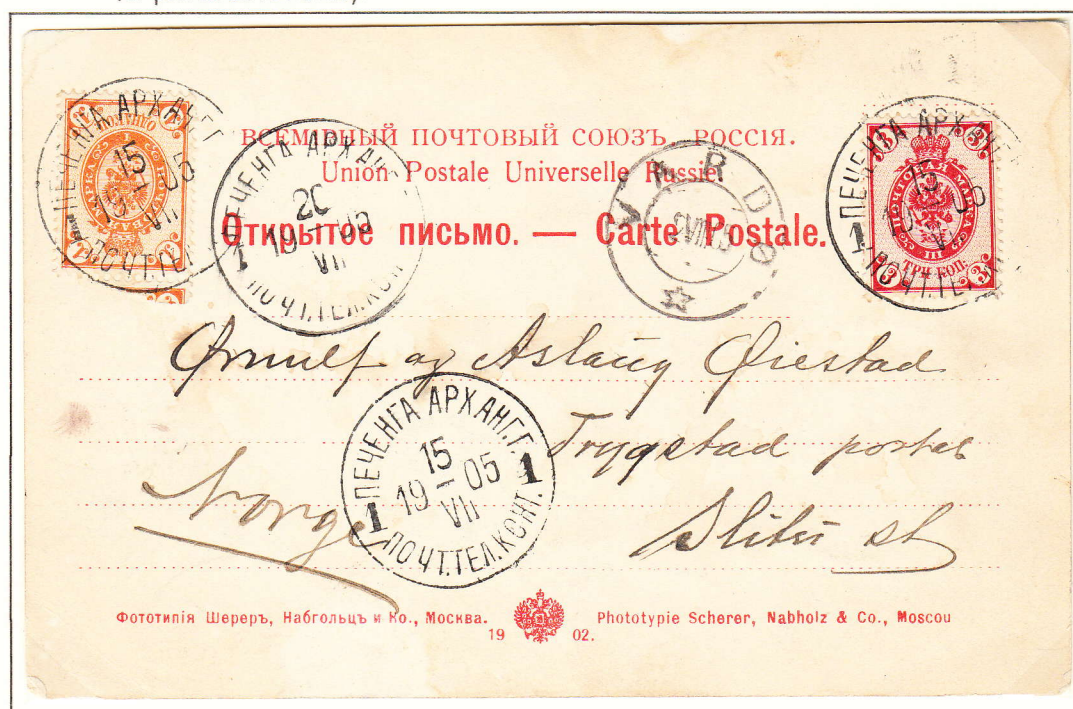 ВСЕМІРНЫЙ ПОЧТОВЫЙ СОЮЗЪ. РОССІЯ.
Union Postale Universelle Russie
Открытое письмо. — Carte Postale.
ПЕЧЕНГА АРХАНГ.Г.
15
19 05
VII
ПОЧТ.ТЕЛ.
ПЕЧЕНГА АРХАНГ.
20
19 05
VII
1
ПОЧТ.ТЕЛ.КОНТ.
VARDØ
ПЕЧЕНГА АРХАНГ.
15
1
ПОЧТ.ТЕЛ.
3 3
ПОЧТОВАЯ МАРКА
III
ТРИ КОП.
3 3
Ørnulf og Aslaug Øiestad
Trygstad postab
Slitu st
Norge
ПЕЧЕНГА АРХАНГ.Г.
15
19 05
VII
1 1
ПОЧТ.ТЕЛ.КОНТ.
Фототипія Шереръ, Набгольцъ и Ко., Москва.
19 02.
Phototypie Scherer, Nabholz & Co., Moscou